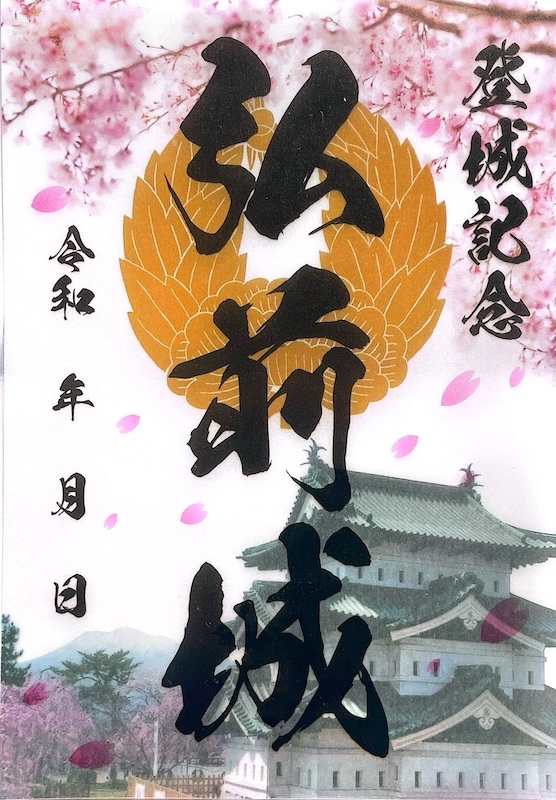 登城記念
弘前城
令和 年 月 日